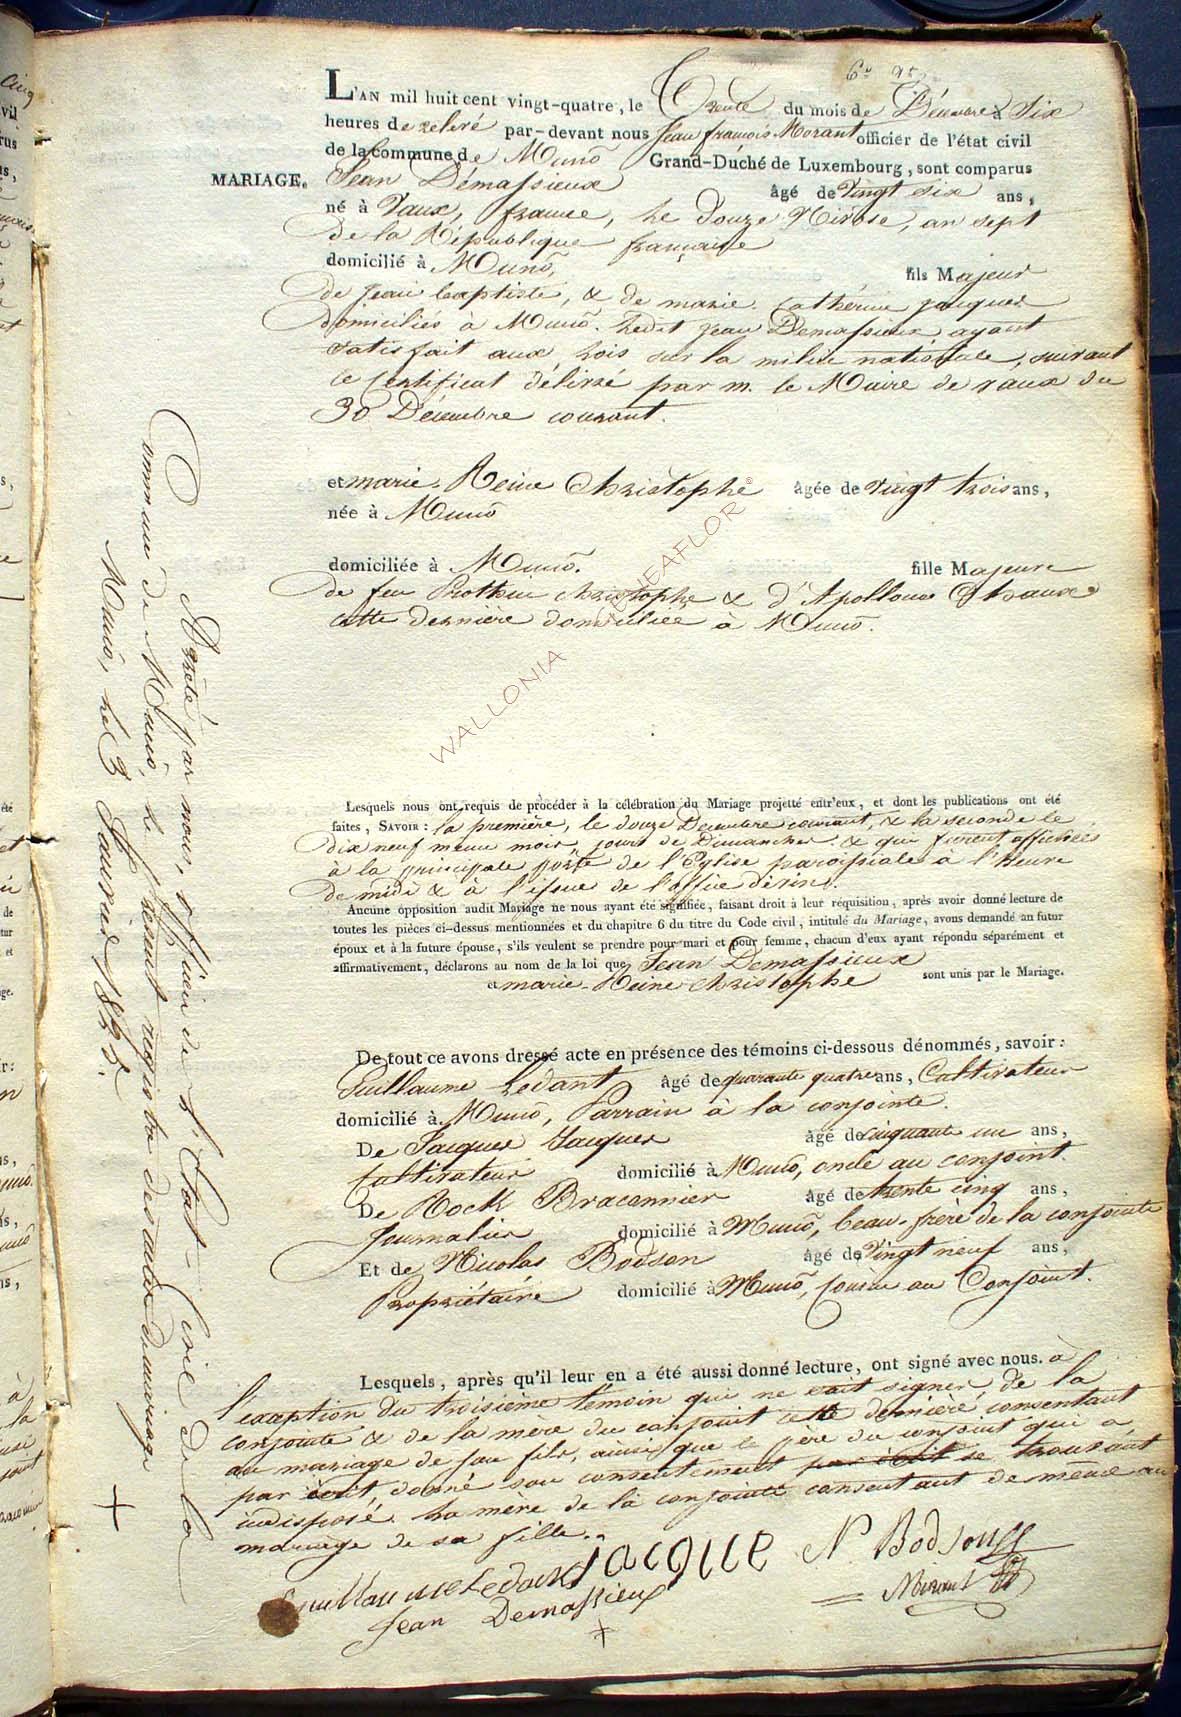 L'AN mil huit cent vingt-quatre, le Trente du mois de Décembre à Six
heures de relevé par-devant nous Jean françois Morant officier de l'état civil
de la commune de Munõ Grand-Duché de Luxembourg, sont comparus
MARIAGE. Jean Démassieux âgé de Vingt six ans,
né à Vaux, france, le douze Nivose, an sept
de la République française
domicilié à Munõ, fils Majeur
de Jean baptiste, & de marie Catherine jacques
domiciliés à Munõ. Ledit jean Demassieux ayant
satisfait aux lois sur la milice nationale, suivant
le Certificat délivré par m. le Maire de vaux du
30 Décembre courant.
et marie Reine Christophe âgée de Vingt trois ans,
née à Munõ
domiciliée à Munõ. fille Majeure
de feu Prothin christophe & d'Apolloné
cette dernière domiciliée à Munõ.
WALLONIA GENEAFLOR®
Lesquels nous ont requis de procéder à la célébration du Mariage projetté entr'eux, et dont les publications ont été
faites, SAVOIR: la première, le douze Decembre courant, & la seconde le
dix neuf meme mois, jours de Dimanches & qui furent affichées
à la principale porte de l'Eglise paroissiale à l'Heure
de midi & à l'issue de l'office divin.
Aucune opposition audit Mariage ne nous ayant été signifiée, faisant droit à leur réquisition, après avoir donné lecture de
toutes les pièces ci-dessus mentionnées et du chapitre 6 du titre du Code civil, intitulé du Mariage, avons demandé au futur
époux et à la future épouse, s'ils veulent se prendre pour mari et pour femme, chacun d'eux ayant répondu séparément et
affirmativement, déclarons au nom de la loi que Jean Demassieux
et marie-Reine Christophe sont unis par le Mariage.
De tout ce avons dressé acte en présence des témoins ci-dessous dénommés, savoir:
Guillaume Ledant âgé de quarante quatre ans, Cultivateur
domicilié à Munõ, Parrain à la conjointe.
De Jacques Jacques âgé de cinquante un ans,
Cultivateur domicilié à Munõ, oncle au conjoint.
De Rock Braconnier âgé de trente cinq ans,
Journalier domicilié à Munõ, beau-frère de la conjointe
Et de Nicolas Bodson âgé de Vingt neuf ans,
Propriétaire domicilié à Munõ, Cousin au Conjoint.
Lesquels, après qu'il leur en a été aussi donné lecture, ont signé avec nous. à
l'exception du troisième témoin qui ne sait signer, de la
conjointe & de la mère du conjoint cette dernière consentant
au mariage de son fils, ainsi que le père du conjoint qui a
par écrit, donné son consentement par écrit se trouvant
indisposé. La mère de la conjointe consentant de même au
mariage de sa fille.
Guillaume Ledant jacque N Bodson
Jean Demassieux Morant
Arrêté par nous, officier de l'état Civil de la
Commune de Munõ, le présent registre des actes de mariage
Munõ, le 3 Janvier 1825.